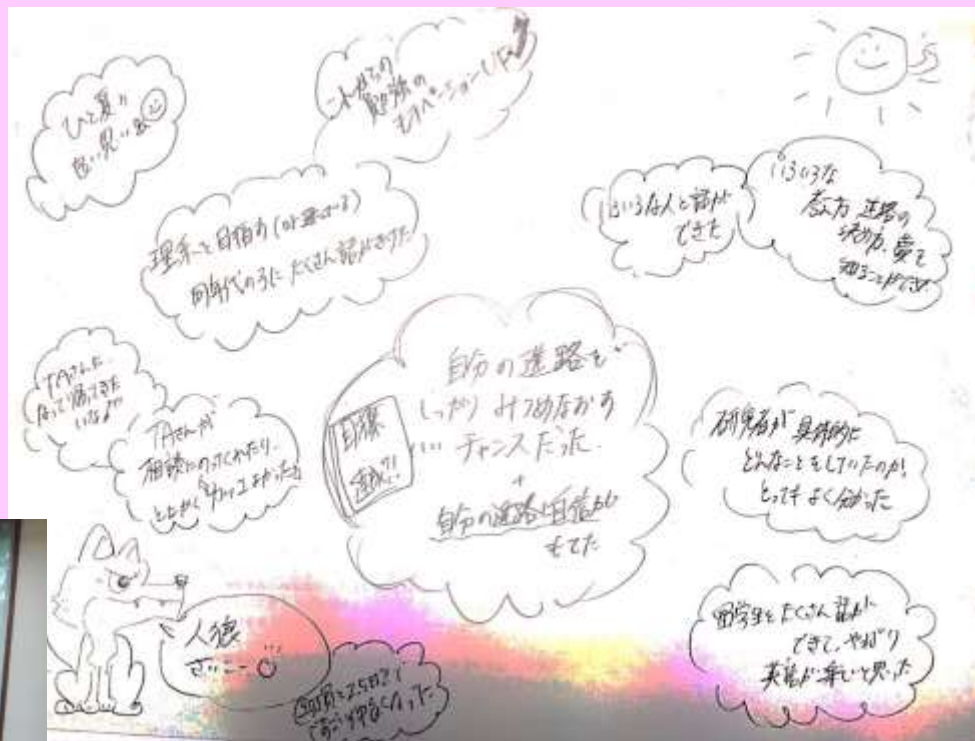 ひと夏の
良い思い出
これからの
勉強の
モチベーションUP
理系を目指す
同年代の子とたくさん話ができた
いろいろな人と話が
できた
いろいろな
考え方 進路の
決め方、夢を
知ることができ
TAさんに
なって帰ってきた
いなぁ
TAさんが
相談にのってくれたり、
とにかく
よかった
目標
自分の進路を
しっかり みつめなおす
チャンスだった
+
自分の進路に自信が
もてた
研究者が 具体的に
どんなことをしていたのか、
とってもよく分かった
留学生とたくさん話が
できて、やはり
英語が
と思った
人狼
さいこー
仲良くなった